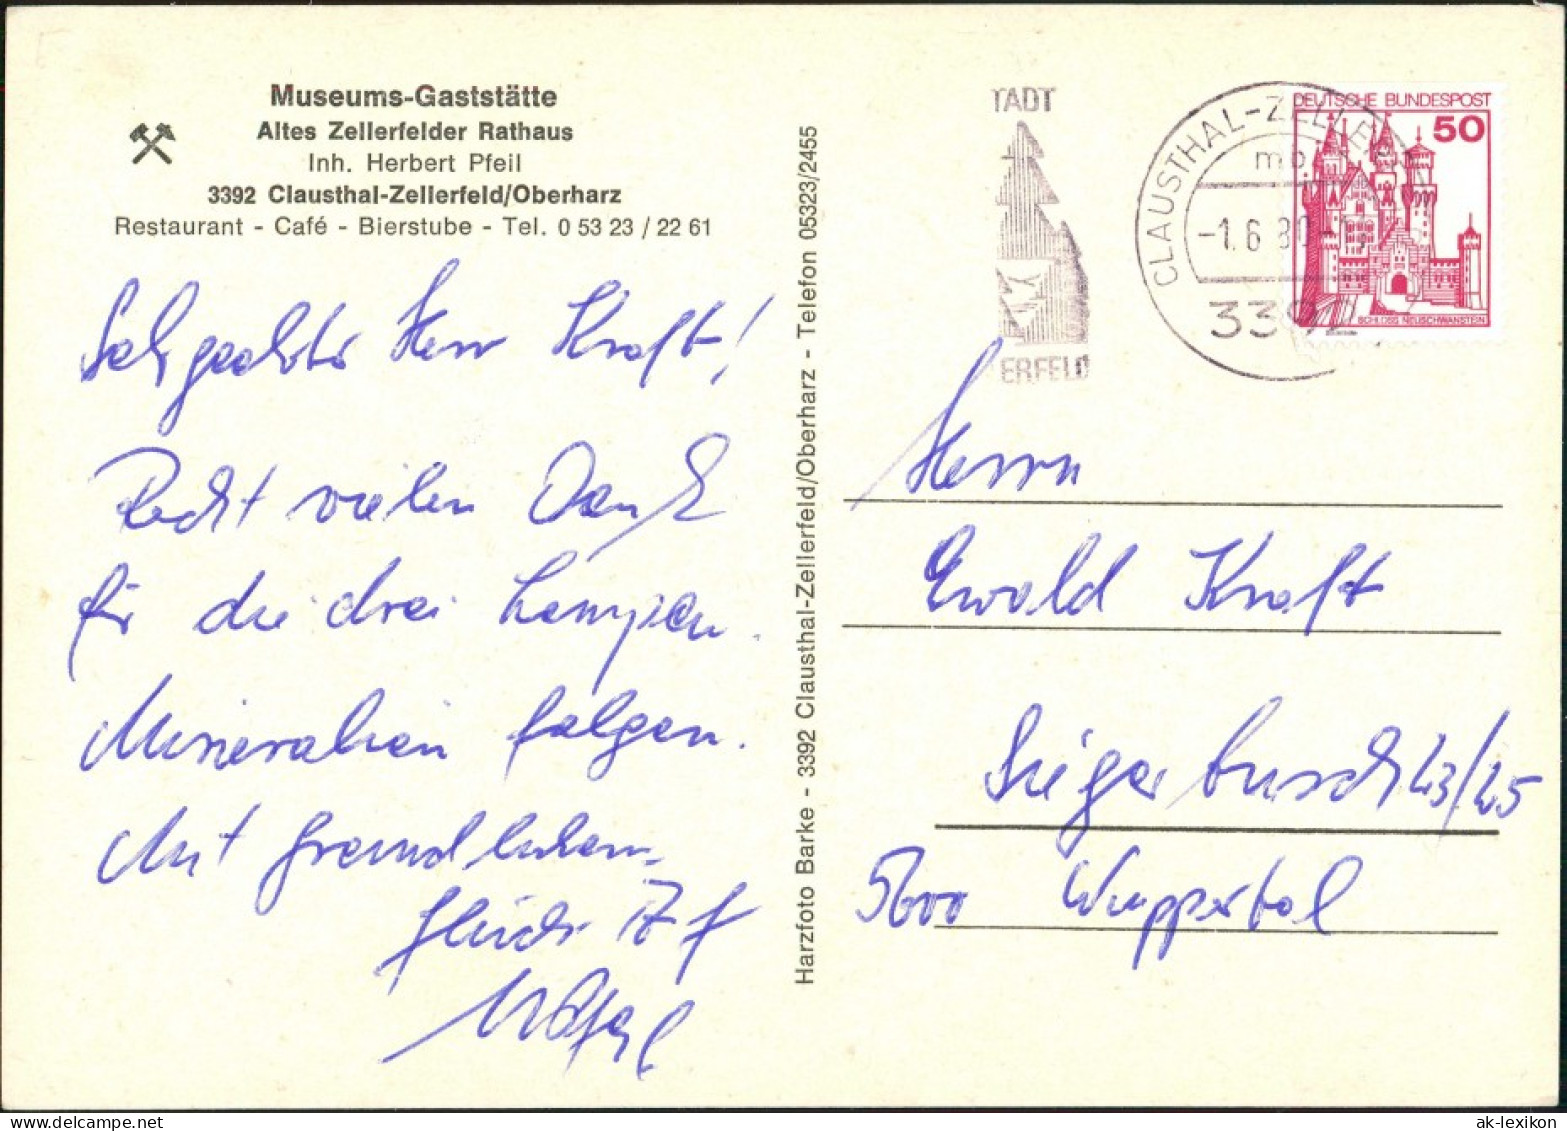 Museums-Gaststätte
Altes Zellerfelder Rathaus
Inh. Herbert Pfeil
3392 Clausthal-Zellerfeld/Oberharz
Restaurant - Café - Bierstube - Tel. 0 53 23 / 22 61
Sehr geehrter Herr Kraft!
Recht vielen Dank
für die drei Lampen.
Mineralien folgen.
Mit freundlichem
Glück
Harzfoto Barke - 3392 Clausthal-Zellerfeld/Oberharz - Telefon 05323/2455
TADT
ERFELD
CLAUSTHAL-ZELLERF
mb
-1.6.80
3392
DEUTSCHE BUNDESPOST
50
SCHLOSS NEUSCHWANSTEIN
Herrn
Ewald Kraft
Siegersbusch 23/25
5600 Wuppertal
ak-lexikon